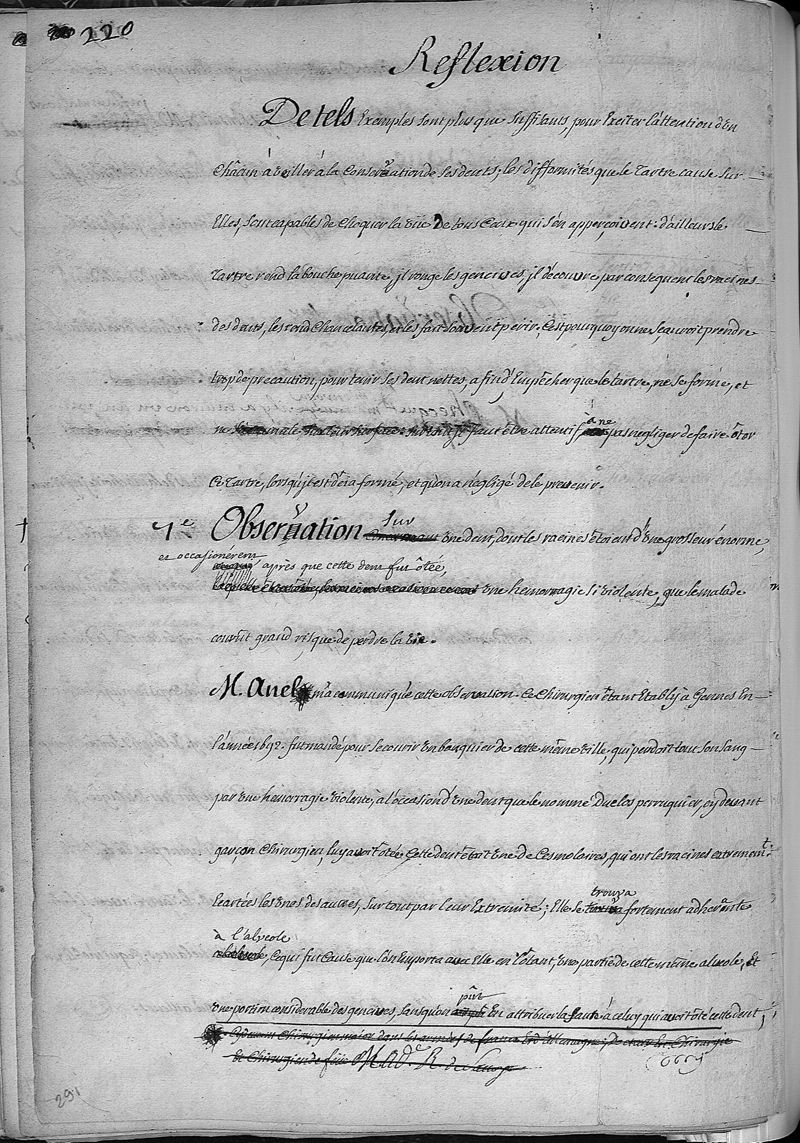 220
Reflexion
De tels Exemples sont plus que suffisants, pour Exciter l'attention d'un
Châcun à veiller à la Conservation de ses dents; les difformités que le Tartre cause sur
Elles, sont capables de choquer la vüe De tous Ceux qui s'en apperçoivent: d'ailleurs le
Tartre rend la bouche puante, jl ronge les gencives, jl découvre par consequent les racines
des dents, les rend Chancelantes, et les fait souvent perir; C'est pourquoy on ne sçauroit prendre
trop de precaution, pour tenir ses dents nettes, a fin d'Empêcher que le tartre, ne se forme, et
peut être attentif, à ne pas negliger de faire ôter
Ce Tartre, lorsqu'jl est déja formé, et qu'on a negligé de le prevenir.
7e Observation sur Une dent, dont les racines étoient d'une grosseur énorme,
et occasionerent après que cette dent fut ôtée,
Une hemorragie si violente, que le malade
courut grand risque de perdre la vie.
M. Anel m'a communiqué cette observation. Ce Chirurgien étant Etably à Gennes En
l'année 1692. fut mandé pour secourir Un banquier de cette même ville, qui perdoit tout son sang
par une hémorragie violente, à l'occasion d'Une dent que le nommé Duclos perruquier, cy devant
garçon Chirurgien, luy avoit ôtée. Cette dent étoit Une de Ces molaires, qui ont les racines extremement
écartées les Unes des autres, sur tout par leur Extremité; Elle se trouva fortement adherante
à l'alveole, Ce qui fut Cause que l'on Emporta avec Elle en l'ôtant, Une partie de cette même alveole, Et
Une portion considerable des gencives, sans qu'on pût En attribuer la faute à celuy qui avoit ôté cette dent;
Chirurgien major dans les armées de france Et d'Allemagne, docteur En Chirurgie
Et Chirurgien de feüe Made R. de Savoye
291